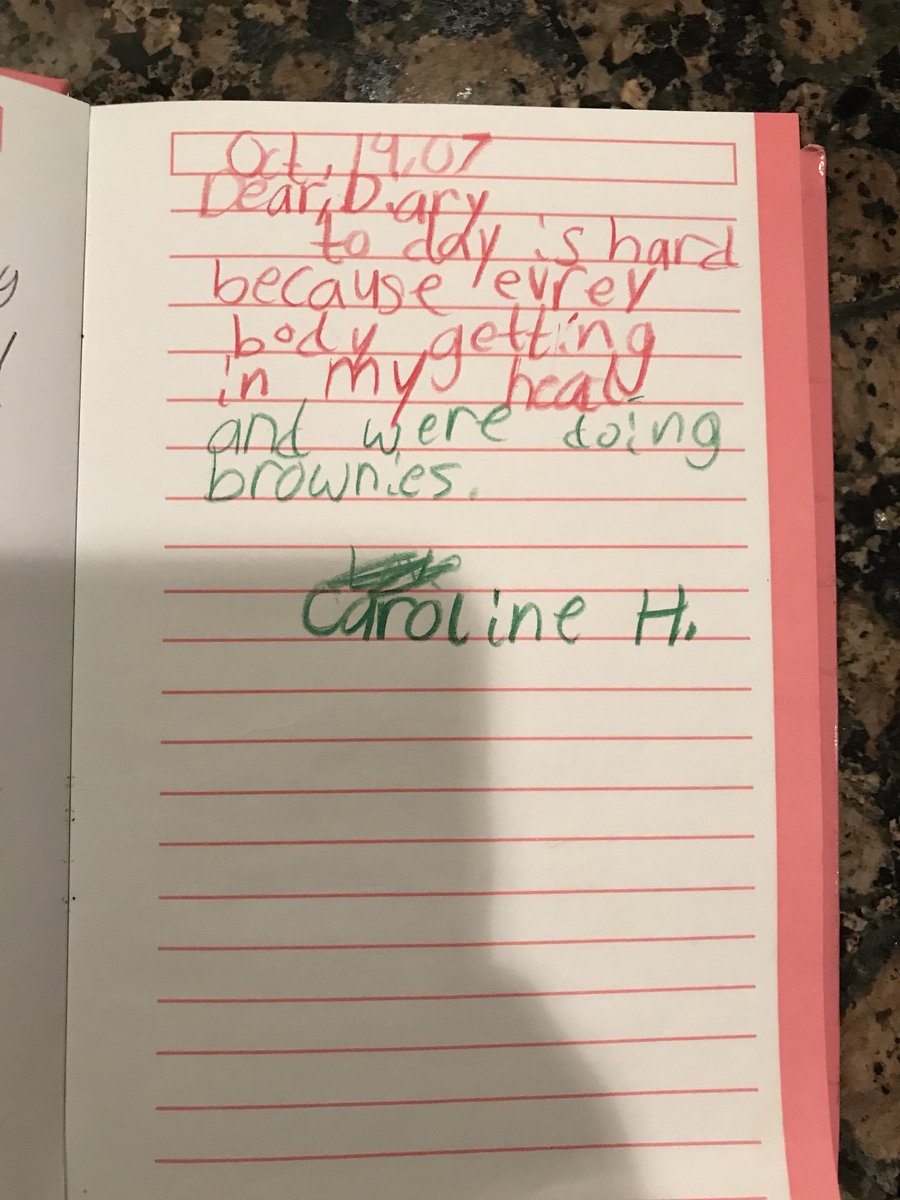 Oct, 19, 07
Dear, Diary
to day is hard
because evrey
body getting
in my head
and were doing
brownies.
Caroline H.